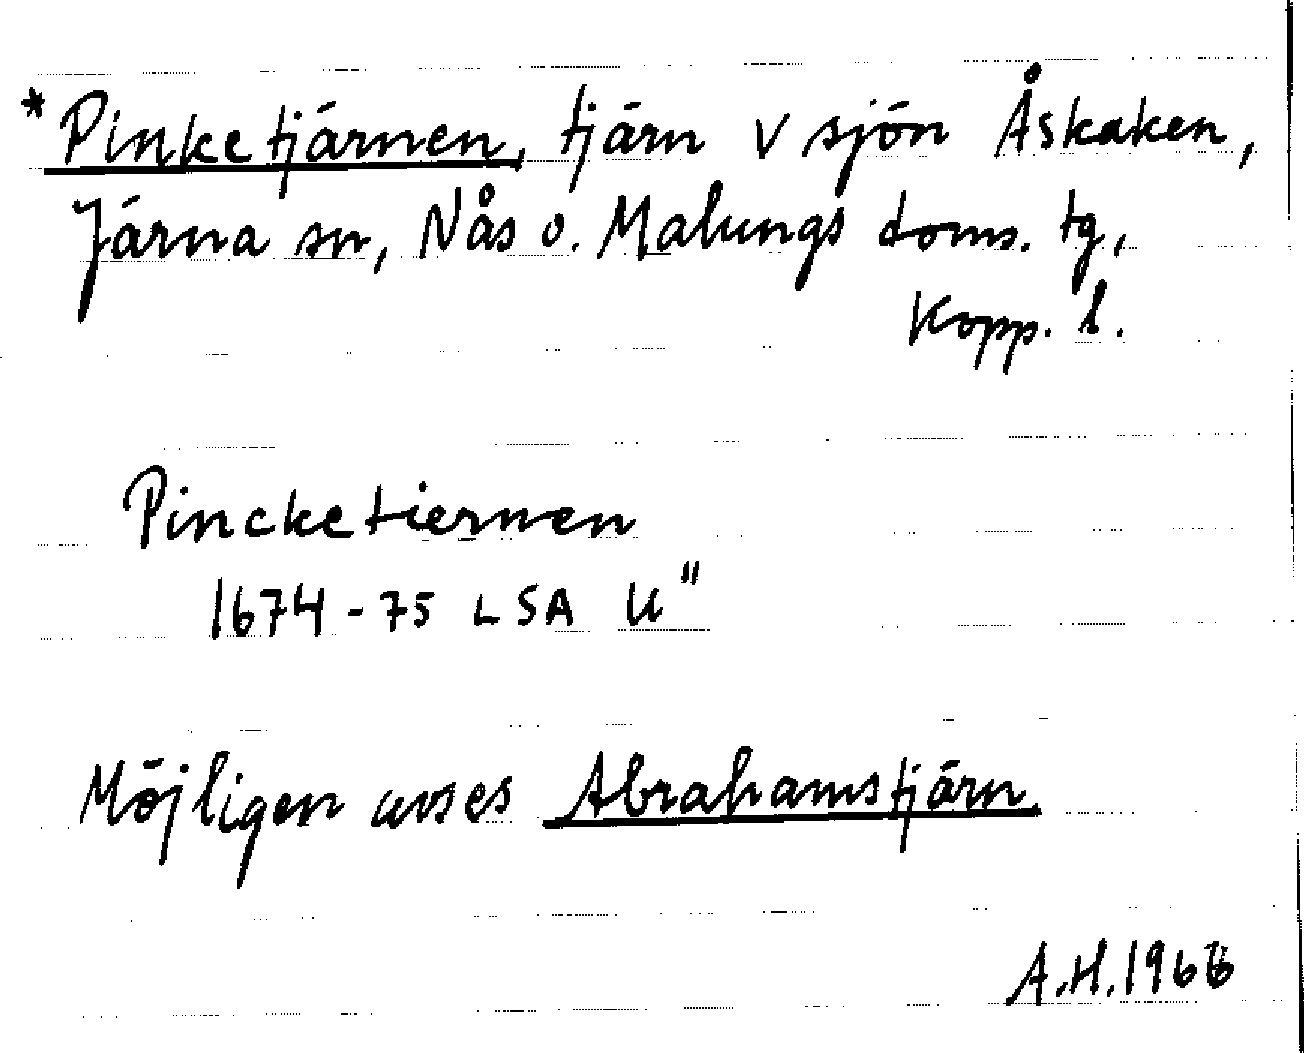 *Pinketjärnen, tjärn v sjön Åskaken,
Järna sn, Nås o. Malungs doms. tg,
Kopp. l.
Pincketiernen
1674-75 LSA U"
Möjligen avses Abrahamstjärn.
A.H.